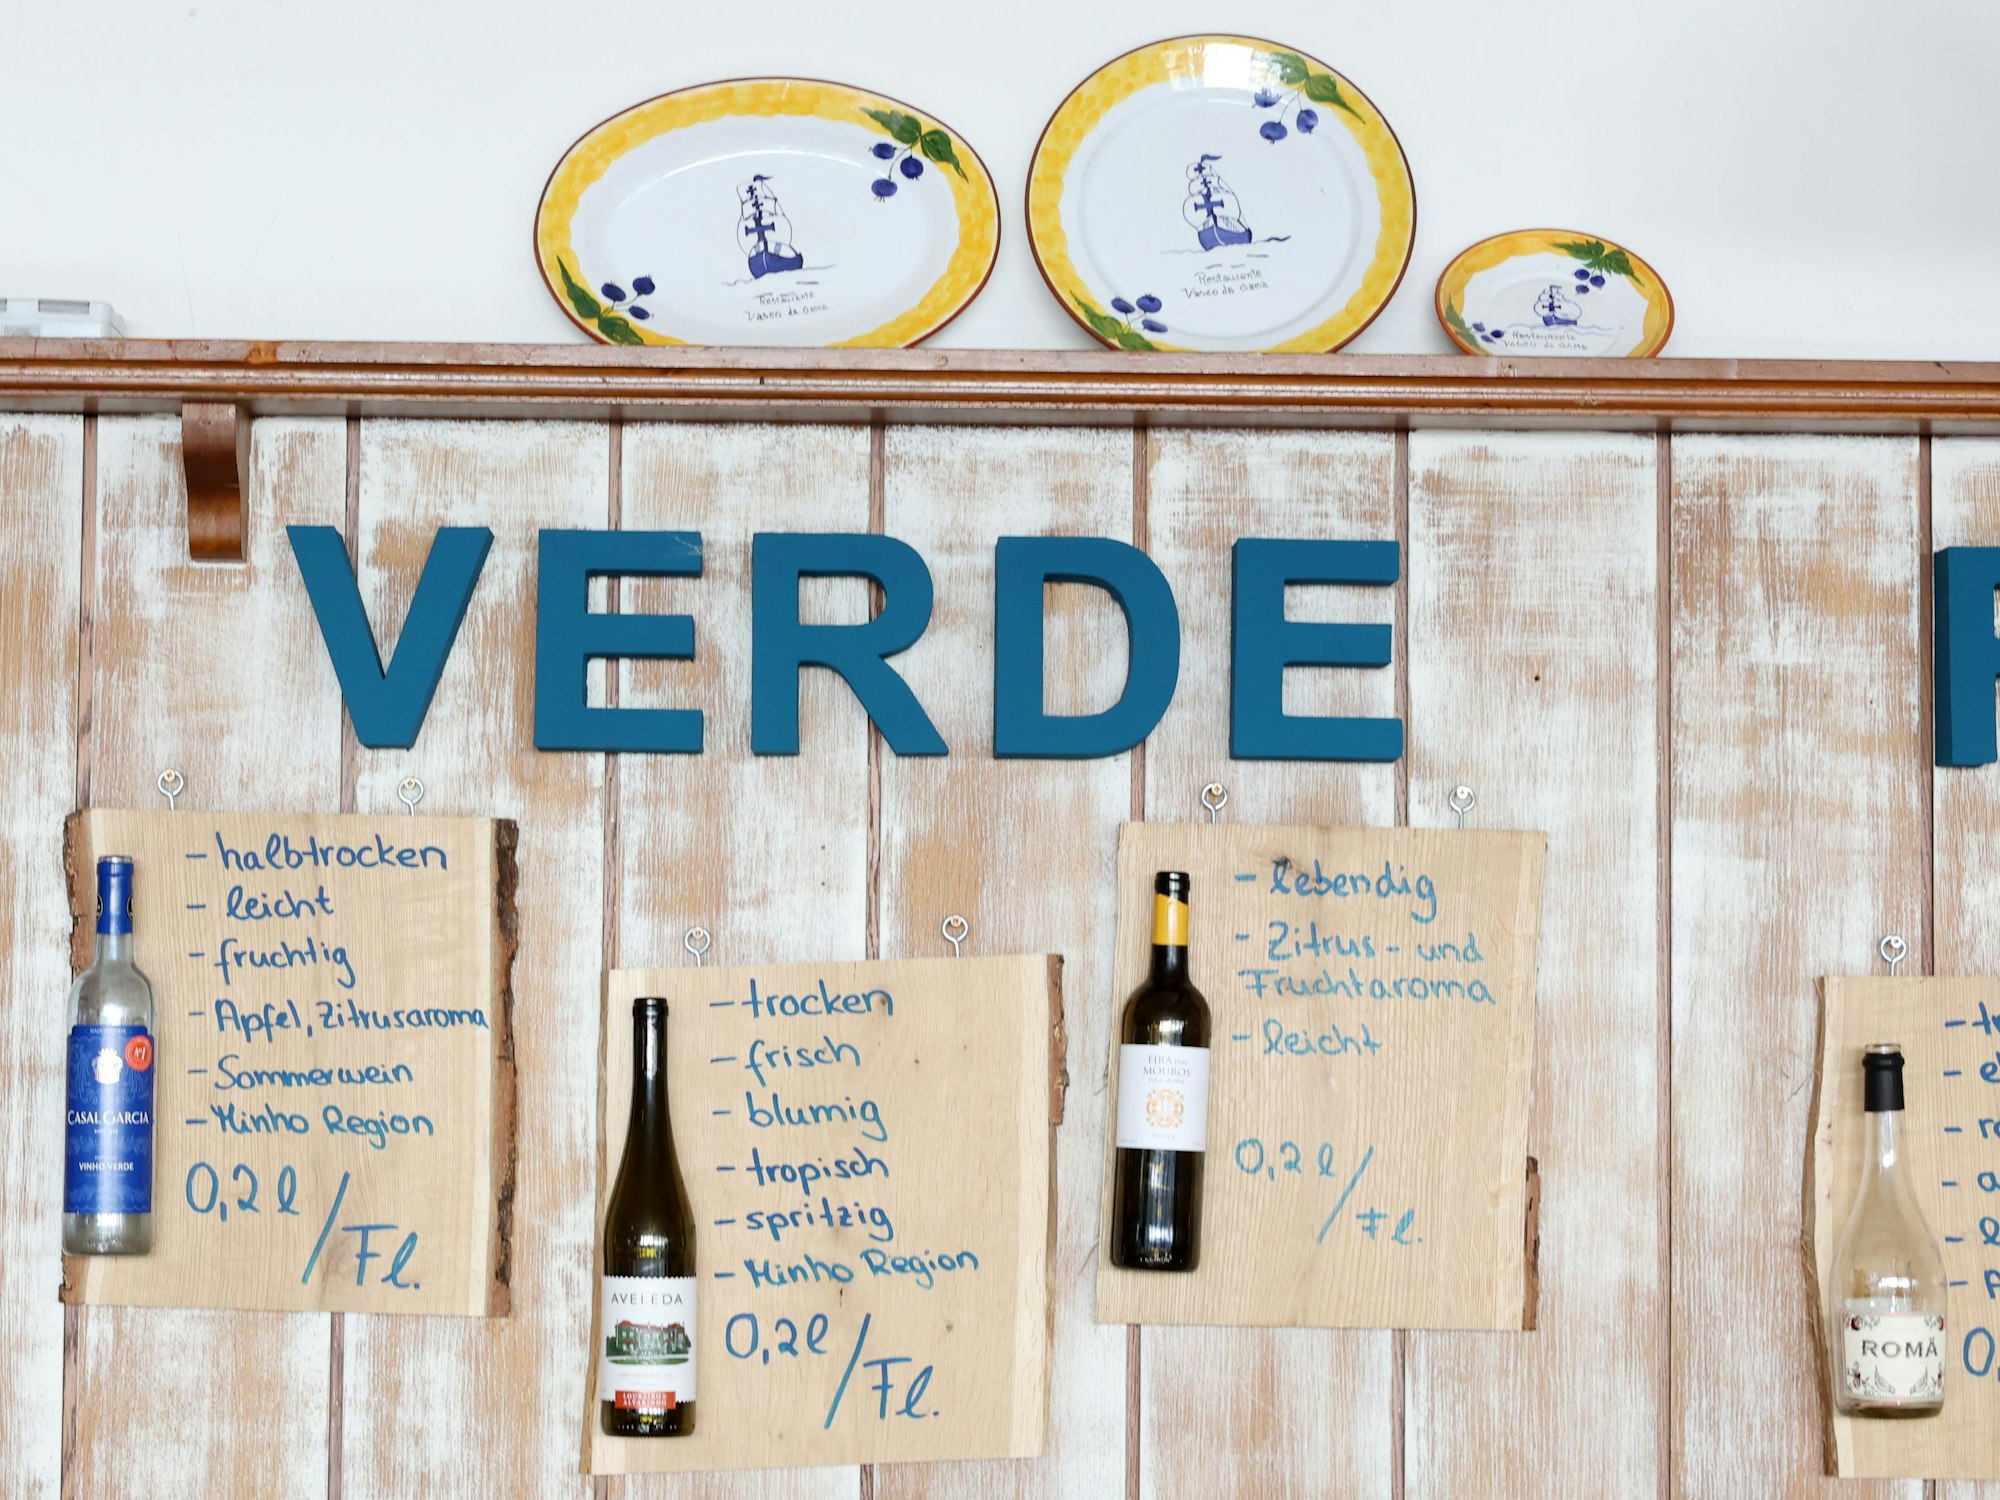 Restaurante
Vasco da Gama
Restaurante
Vasco da Gama
Restaurante
Vasco da Gama
VERDE
- halbtrocken
- leicht
- fruchtig
- Apfel, Zitrusaroma
- Sommerwein
- Minho Region
0,2l/Fl.
Nº1
CASAL GARCIA
VINHO VERDE
- trocken
- frisch
- blumig
- tropisch
- spritzig
- Minho Region
0,2l/Fl.
AVELEDA
LOUREIRO
ALVARINHO
- lebendig
- Zitrus- und
Fruchtaroma
- leicht
0,2l/Fl.
MOUROS
ROMÃ